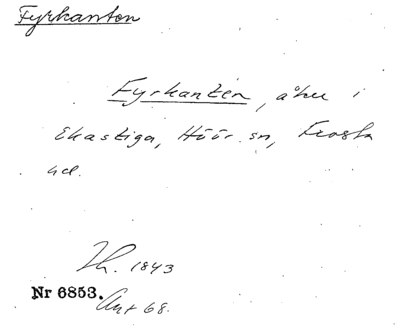 Fyrkanten
Fyrkanten, åker i
Ekastiga, Höör sn, Frosta
hd.
Th. 1843
Nr 6853. Ant 68.